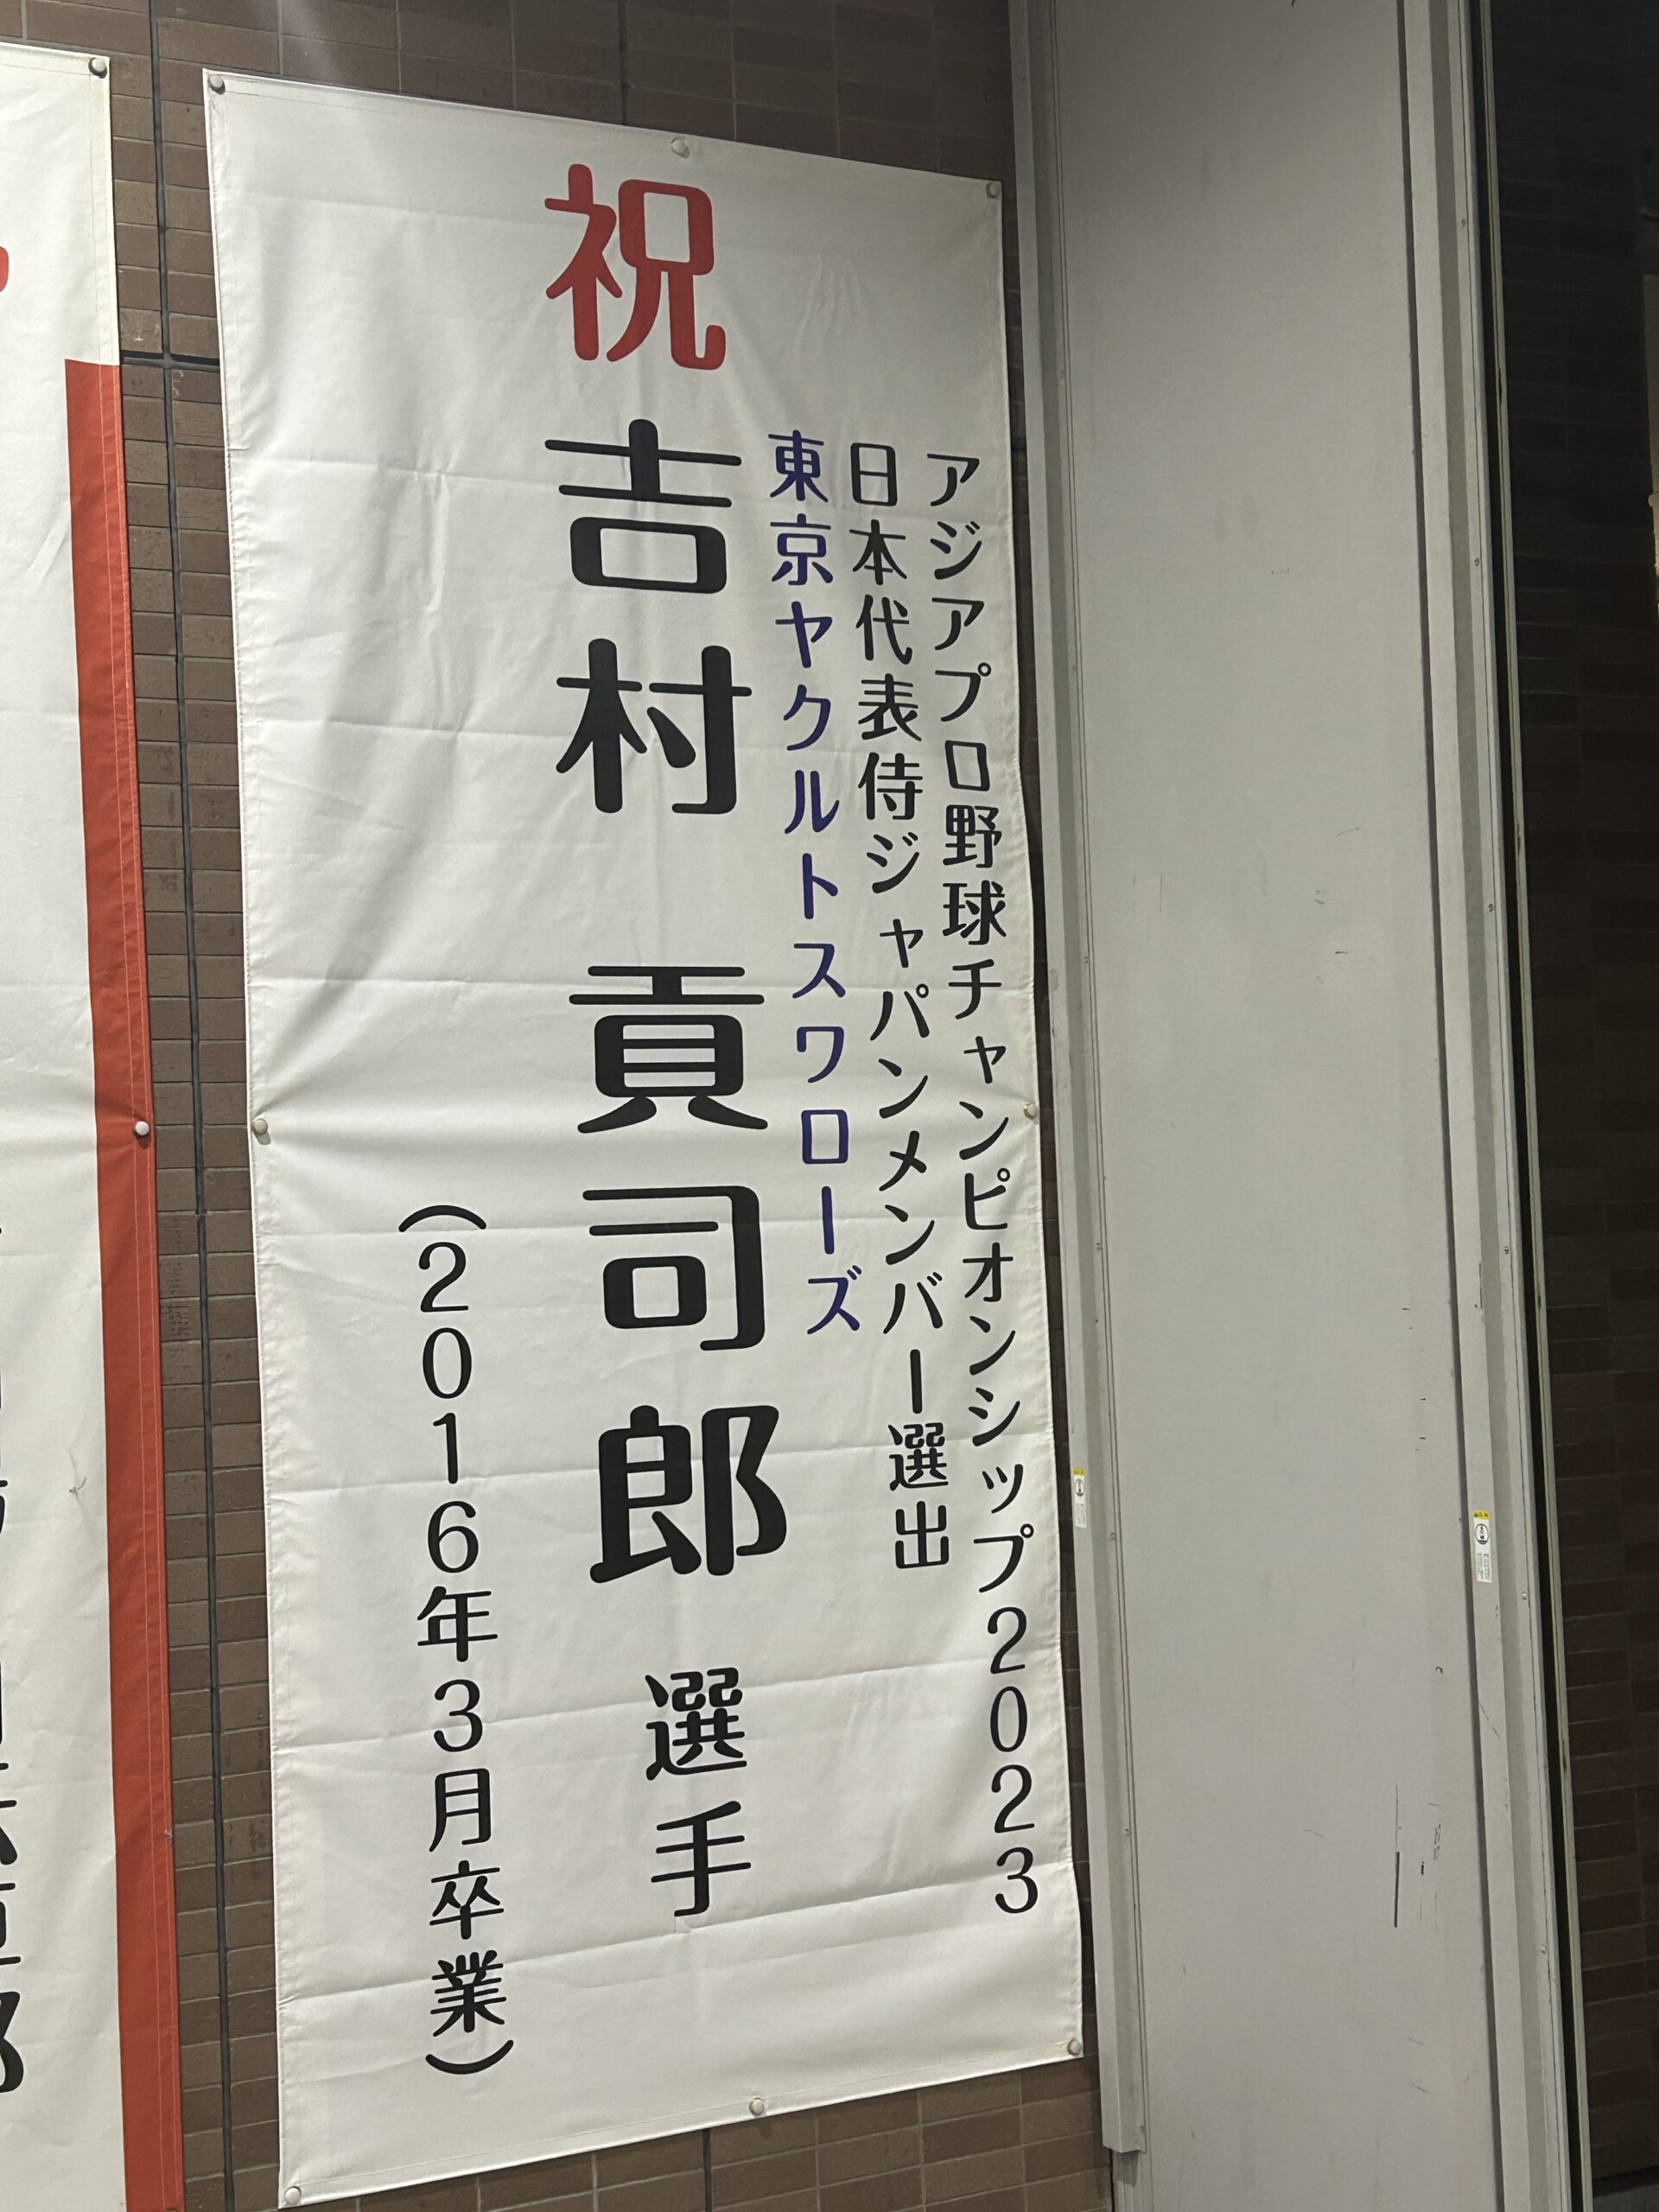 祝
アジアプロ野球チャンピオンシップ2023
日本代表侍ジャパンメンバー選出
東京ヤクルトスワローズ
吉村 貢司郎 選手
(2016年3月卒業)